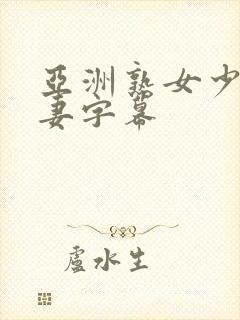 亞洲熟女少
妻字幕
盧水生